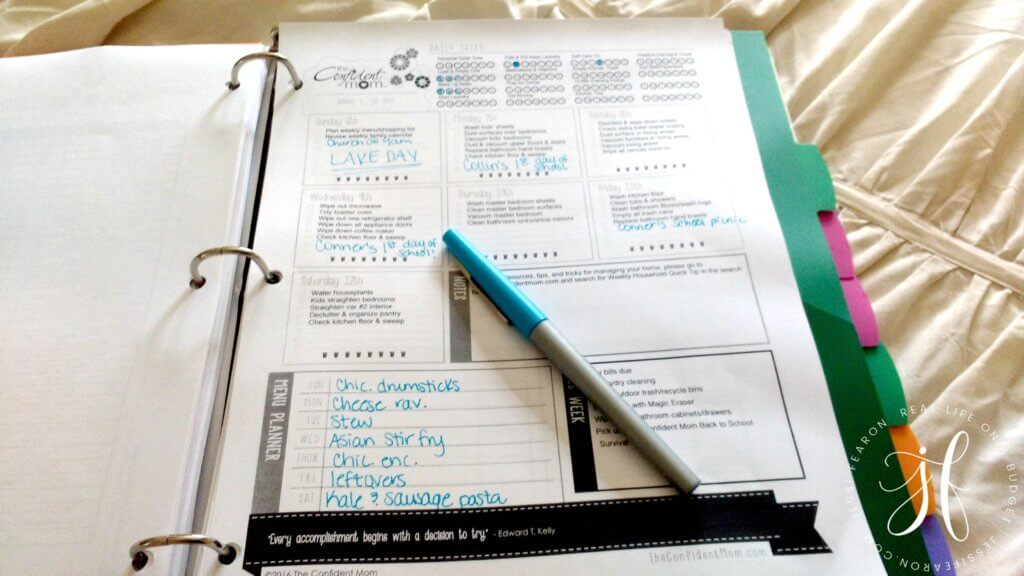 DAILY TASKS
the
Confident
mom
Sunday 6th
Plan weekly menu/shopping list
Review weekly family calendar
Church @ 9am
LAKE DAY
Monday 7th
Wash kids' sheets
Dust surfaces kids' bedrooms
Vacuum kids' bedrooms
Dust & vacuum upper floors & stairs
Replace bathroom hand towels
Check kitchen floor & sweep
Collin's 1st day of
school
Tuesday 8th
Disinfect & wipe down toilets
Check extra toilet paper supply
Dust surface in living areas
Vacuum furniture in living areas
Vacuum living areas
Wipe all remote controls
Wednesday 9th
Wipe out microwave
Tidy toaster oven
Wipe out one refrigerator shelf
Wipe down all appliance doors
Wipe down coffee maker
Check kitchen floor & sweep
Conner's 1st day of
school!
Thursday 10th
Wash master bedroom sheets
Clean master bedroom surfaces
Vacuum master bedroom
Clean bathroom sinks/shine mirrors
Friday 11th
Wash kitchen floor
Clean tubs & showers
Wash bathroom floors/wash rugs
Empty all trash cans
Replace bathroom hand towels
Conner's school picnic
Saturday 12th
Water houseplants
Kids straighten bedrooms
Straighten car #2 interior
Declutter & organize pantry
Check kitchen floor & sweep
NOTES
sources, tips, and tricks for managing your home, please go to
dentmom.com and search for Weekly Household Quick Tip in the search
MENU PLANNER
SUN Chic. drumsticks
MON Cheese rav.
TUE Stew
WED Asian Stir fry
THUR Chic. enc.
FRI leftovers
SAT Kale & Sausage pasta
WEEK
bills due
dry cleaning
outdoor trash/recycle bins
with Magic Eraser
bathroom cabinets/drawers
Confident Mom Back to School
Survival
"Every accomplishment begins with a decision to try." - Edward T. Kelly
©2016 The Confident Mom
TheConfidentMom.com
JESSI FEARON. REAL LIFE ON A BUDGET
JESSIFEARON.COM
jf